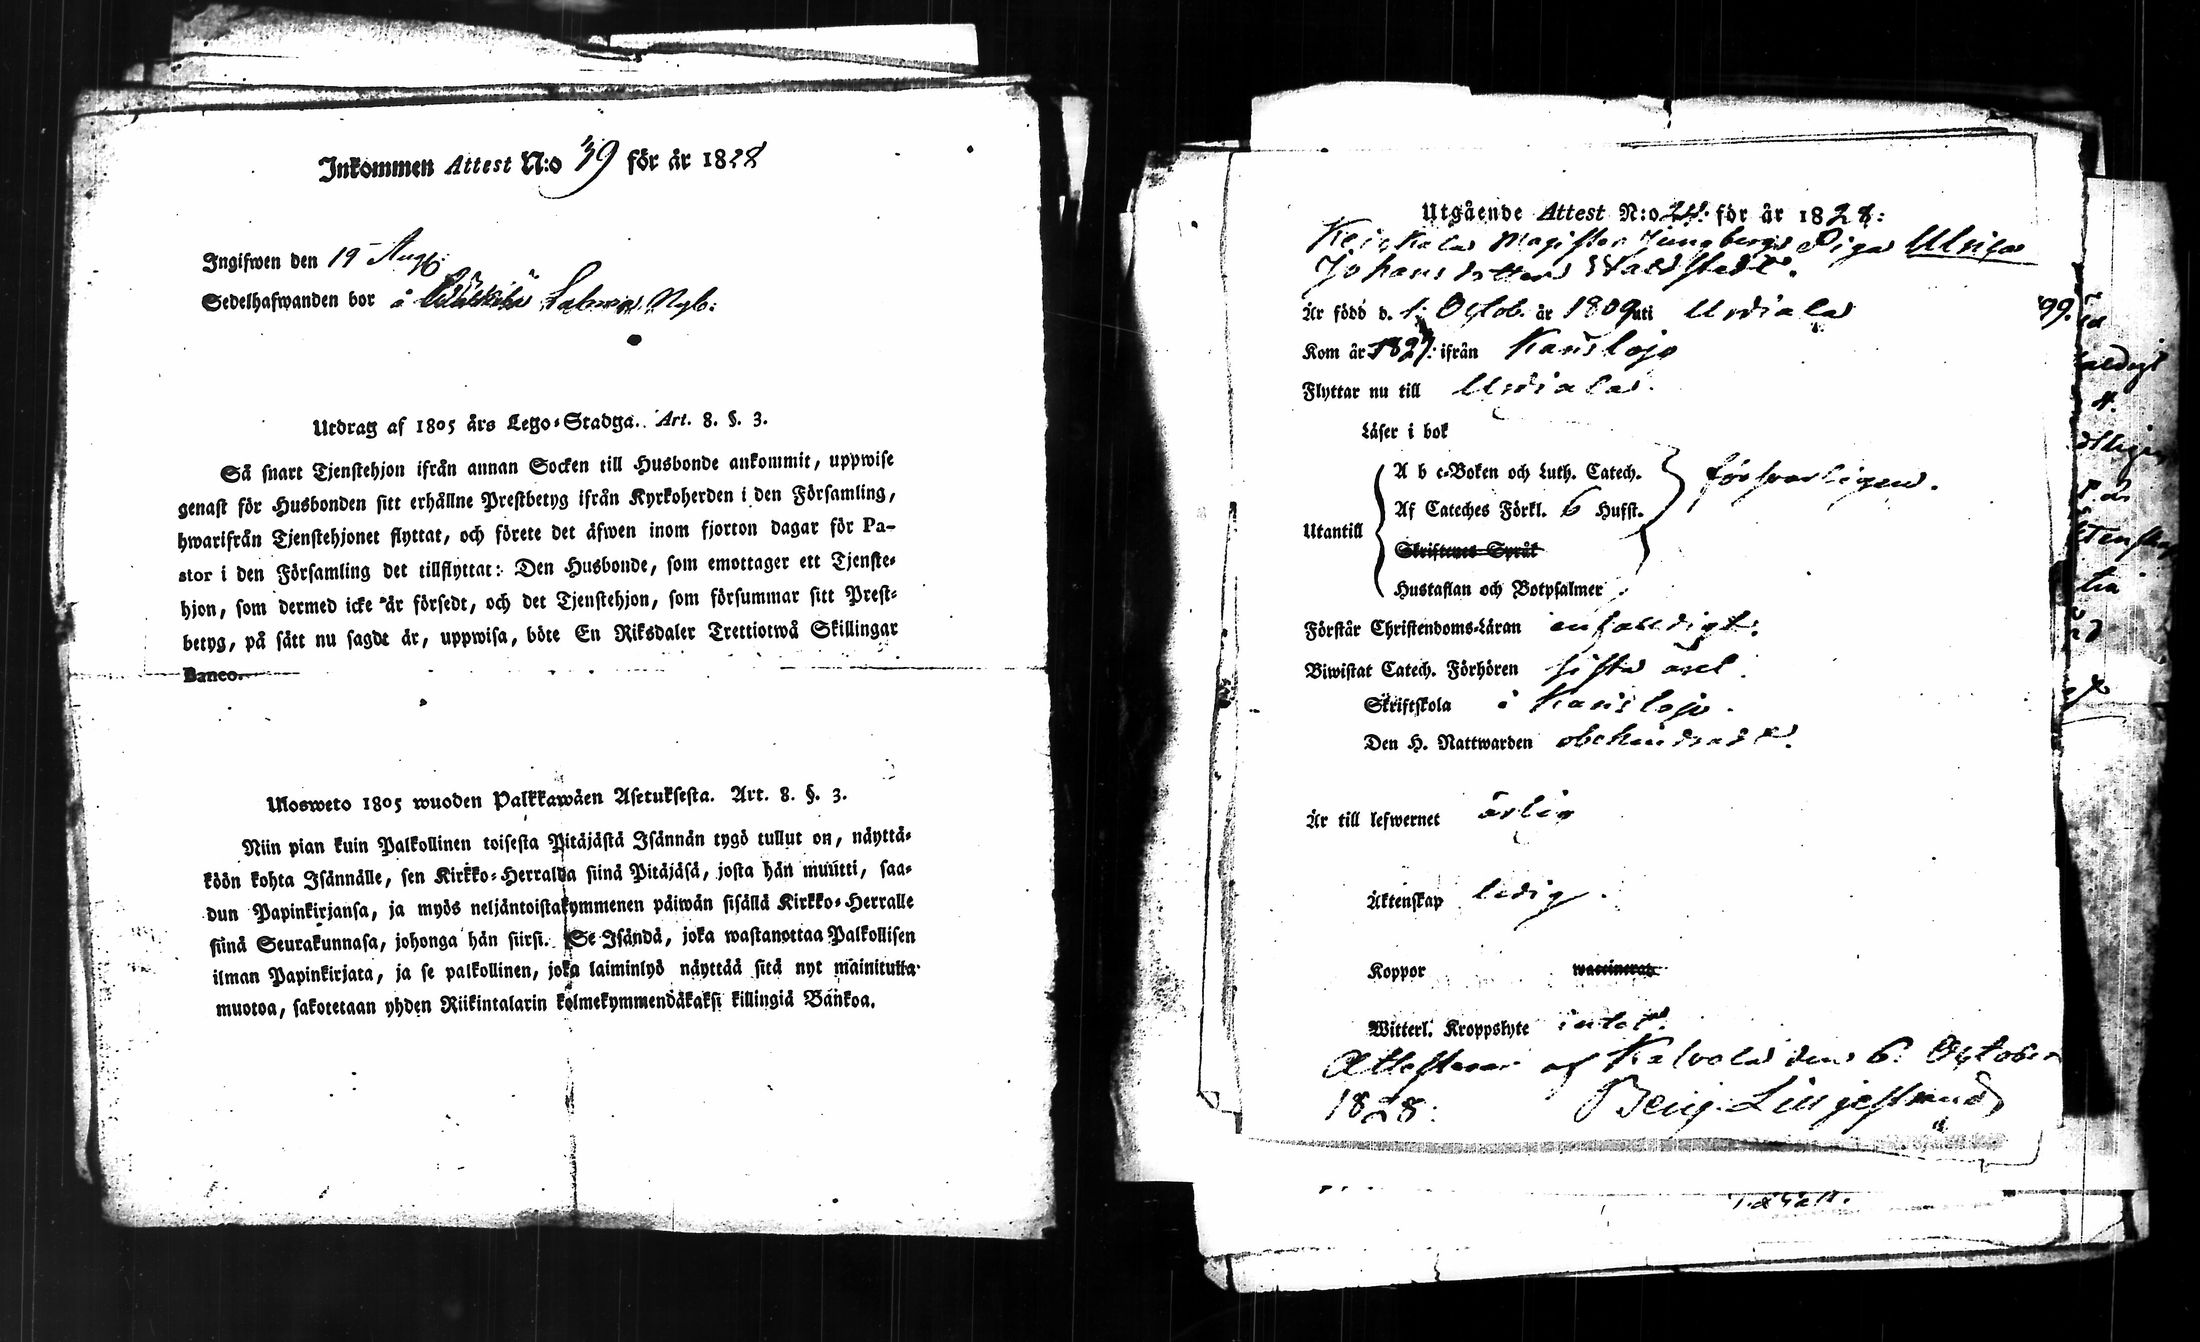 Inkommen Attest N:o 39 för år 1828
Ingifwen den 19 Aug.
Sedelhafwanden bor å Nyb:
Utdrag af 1805 års Lego-Stadga. Art. 8. §. 3.
Så snart Tjenstehjon ifrån annan Socken till Husbonde ankommit, uppwise
genast för Husbonden sitt erhållne Prestbetyg ifrån Kyrkoherden i den Församling,
hwarifrån Tjenstehjonet flyttat, och förete det äfwen inom fjorton dagar för Pa-
stor i den Församling det tillflyttat: Den Husbonde, som emottager ett Tjenste-
hjon, som dermed icke är försedt, och det Tjenstehjon, som försummar sitt Prest-
betyg, på sätt nu sagdt är, uppwisa, böte En Riksdaler Trettiotwå Skillingar
Banco.
Ulosweto 1805 wuoden Palkkawäen Asetuksesta. Art. 8. §. 3.
Niin pian kuin Palkollinen toisesta Pitäjästä Isännän tygö tullut on, näyttä-
köön kohta Isännälle, sen Kirkko-Herralda siinä Pitäjäsä, josta hän muutti, saa-
dun Papinkirjansa, ja myös neljäntoistakymmenen päiwän sisällä Kirkko-Herralle
siinä Seurakunnasa, johonga hän siirsi. Se Isändä, joka wastanottaa Palkollisen
ilman Papinkirjata, ja se palkollinen, joka laiminlyö näyttää sitä nyt mainitulla
muotoa, sakotetaan yhden Riikintalarin kolmekymmendäkaksi killingiä Bankoa.
Utgående Attest N:o 24. för år 1828:
Magister Ljungbergs Piga Ulrica
Johansdotter Waldstedt.
Är född d. 1. Octob. år 1809 uti Urdiala
Kom år 1827. ifrån Karislojo
Flyttar nu till Urdiala.
Läser i bok
Utantill
A b c-Boken och Luth. Catech.
Af Cateches Förkl. 6 Hufst.
Skriftenes Språk
Hustaflan och Botpsalmer
försvarligen.
Förstår Christendoms-Läran enfaldigt.
Biwistat Catech. Förhören sista året.
Skriftskola i Karislojo.
Den H. Nattwarden obehindrad.
Är till lefwernet ärlig
Äktenskap ledig.
Koppor waccinerats
Witterl. Kroppslyte intet.
Attesterar af Kalvola den 6. October
1828: Benj. Liljestrand
99.